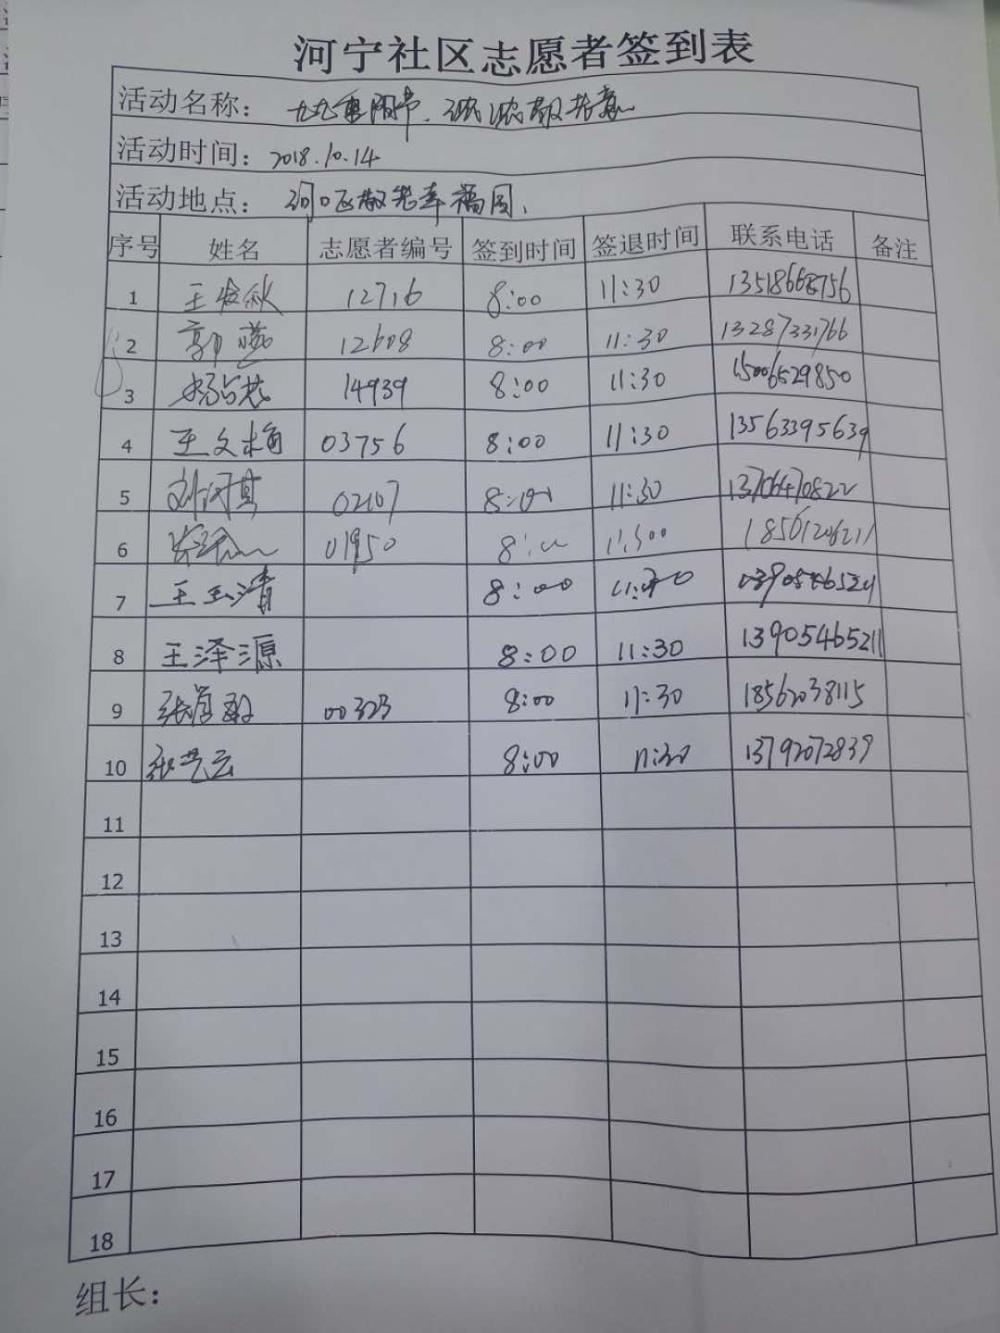 河宁社区志愿者签到表
活动名称： 九九重阳节、浓浓敬老意
活动时间：2018.10.14
活动地点： 河口区敬老年福园、
序号 姓名 志愿者编号 签到时间 签退时间 联系电话 备注
1 王俊秋 12716 8:00 11:30 13518668756
2 郭燕 12608 8:00 11:30 13287331766
3 杨占花 14939 8:00 11:30 15006529850
4 王文梅 03756 8:00 11:30 13563395639
5 刘 02107 8:00 11:30 13706470822
6 01950 8:00 18561206211
7 王玉清 8:00
8 王泽源 8:00 11:30 13905465211
9 张 00323 8:00 11:30 18562038115
10 张芝云 8:00 11:30 13792072839
11
12
13
14
15
16
17
18
组长：